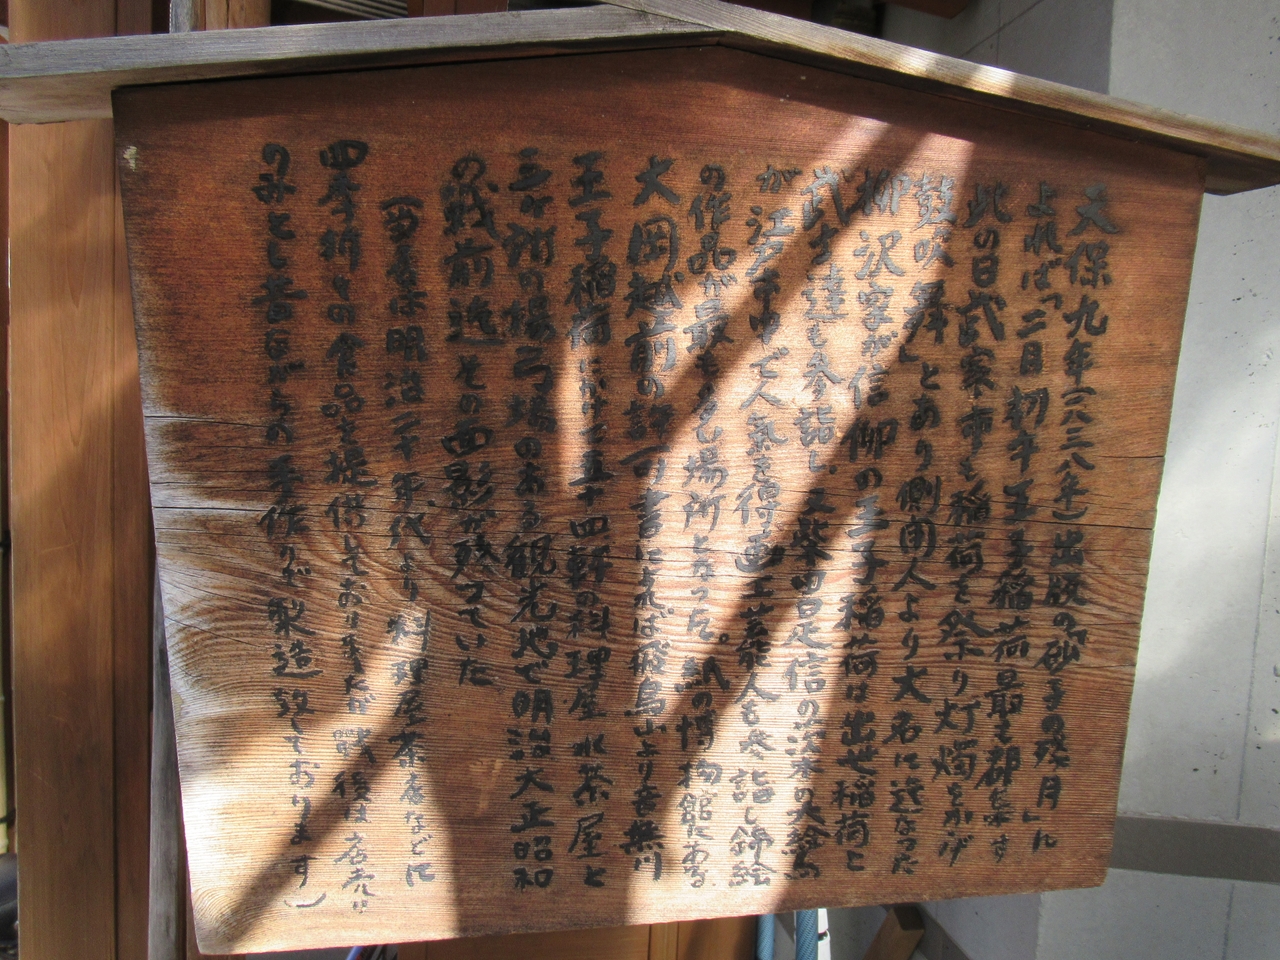 天保九年(一八三八年)出版の『砂子の残月』に
よれば「二日初午王子稲荷最も群集す
此の日武家市も稲荷を祭り灯燭をかゝげ
鼓吹舞」とあり側用人より大名に迄なった
柳沢室が信仰の王子稲荷は出世稲荷と
武士達も参詣し、柴田是信の茨木の大絵馬
が江戸市中で人気を得画工芸能人も参詣し錦絵
の作品が最も多い場所となった。紙の博物館にある
大岡越前の許可書によれば飛鳥山より音無川
王子稲荷にかけて五十四軒の料理屋水茶屋と
三ヶ所の楊弓場のある観光地で明治大正昭和
の戦前迄その面影が残っていた
(当店は明治二十年代より料理屋茶店などに
四季折々の食品を提供しておりましたが戦後は店売り
のみとし昔ながらの手作りで製造致しております)